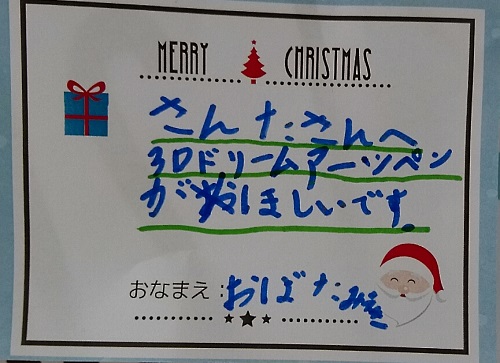 MERRY CHRISTMAS
さんたさんへ
3Dドリームアーツペン
がほしいです。
おなまえ:おばた